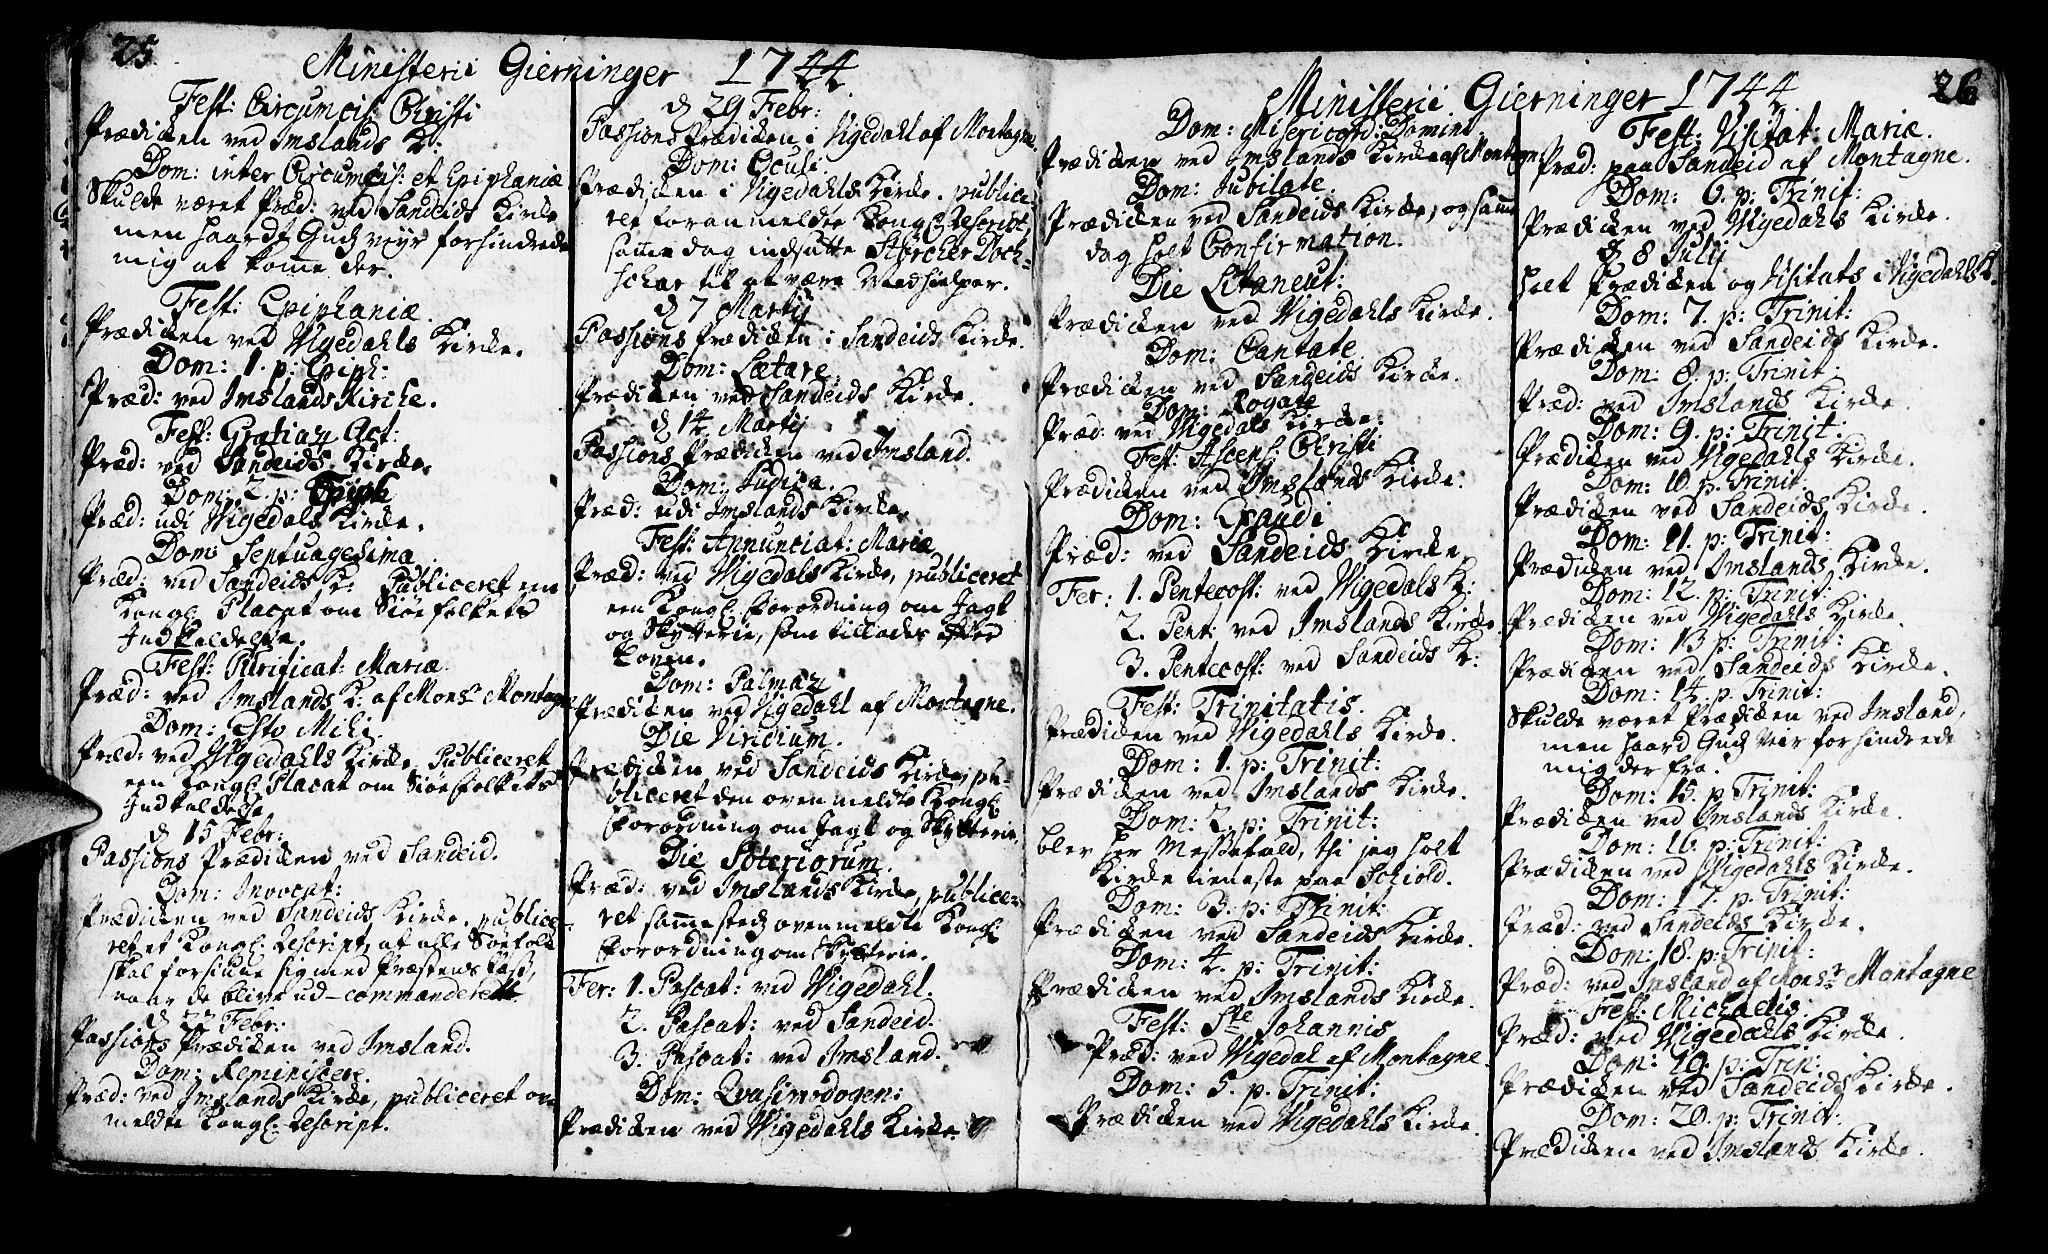 25
Ministerii Gierninger 1744.
Fest: Circumcis: Christi
Prædiken ved Imslands K:
Dom: inter Circumcis: et Epiphaniæ
Skulde været Præd: ved Sandeids Kirke
men haardt Guds veyr forhindrede
mig at komme der.
Fest: Epiphaniæ.
Prædiken ved Vigedahls Kirke.
Dom: 1. p: Epiph:
Præd: ved Imslands Kirche.
Fest: Gratiar: Act:
Præd: ved Sandeids Kirke.
Dom: 2. p: Epiph
Præd: udi Vigedals Kirke.
Dom: Septuagesima
Præd: ved Sandeids K: Publiceret een
Kongl: Placat om Siøefolkets
Indkaldelse.
Fest: Purificat: Mariæ.
Præd: ved Imslands K: af Monsr Montagne
Dom: Esto Mihi.
Præd: ved Vigedahls Kirke. Publiceret
een Kongl: Placat om Siøefolkets
Indkaldelse
d 15 Febr:
Passions Prædiken ved Sandeid.
Dom: Invocat:
Prædiken ved Sandeids Kirke. publice-
ret et Kongl: Rescript, at alle Søefolk
skal forsiune sig med Præstens Pass,
naar de blive ud-commanderett
d 22 Febr:
Passions Prædiken ved Imsland.
Dom: Reminiscere.
Præd: ved Imslands Kirke, publiceret ov
meldte Kongl: Rescript.
d 29 Febr:
Passions Prædiken i Vigedahl af Montagne
Dom: Oculi.
Prædiken i Vigedahls Kirke. publice-
ret foranmeldte Kongl: Rescript,
samme dag indsatte Størcher Dock-
schar til at være Medhielper.
d 7 Martij
Passions Prædiken i Sandeids Kirke.
Dom: Lætare
Prædiken ved Sandeids Kirke.
d 14 Martij
Passions Prædiken ved Imsland.
Dom: Judica.
Præd: udi Imslands Kirke.
Fest: Annunciat: Mariæ
Præd: ved Vigedals Kirke, publiceret
een Kongl: Forordning om Jagt
og Skytterie, som tillades efter
Loven.
Dom: Palmar
Prædiken ved Vigedahl af Montagne.
Die Viridium.
Prædiken ved Sandeids Kirke, pu-
bliceret den ovenmeldte Kongl:
Forordning om Jagt og Skytterie.
Die Soteriorum.
Præd: ved Imslands Kirke, publice-
ret sammesteds ovenmeldte Kongl:
Forordning om Skytterie.
Fer: 1. Pascat: ved Vigedahl.
2. Pascat: ved Sandeid.
3. Pascat: ved Imsland.
Dom: Qvasimodogen:
Prædiken ved Vigedahls Kirke.
26
Ministerii Gierninger 1744.
Dom: Misericord: Domini.
Prædiken ved Imslands Kirke af Montagn:
Dom: Jubilate.
Prædiken ved Sandeids Kirke, og samme
dag holt Confirmation.
Die Litaneut:
Prædiken ved Vigedahls Kirke.
Dom: Cantate
Prædiken ved Sandeids Kirke.
Dom: Rogate
Præd: ved Vigedals Kirke:
Fest: Ascens: Christi
Prædiken ved Imslands Kirke.
Dom: Exaudi
Præd: ved Sandeids Kirke
Fer: 1. Pentecost: ved Vigedals K:
2. Pent: ved Imslands Kirke.
3. Pentecost: ved Sandeids K:
Fest: Trinitatis.
Prædiken ved Vigedahls Kirke.
Dom: 1. p: Trinit:
Prædiken ved Imslands Kirke.
Dom: 2. p: Trinit:
blev her Messefald, thi jeg holt
Kirke tieneste paa Schiold.
Dom: 3. p: Trinit:
Prædiken ved Sandeids Kirke.
Dom: 4. p: Trinit:
Prædiken ved Imslands Kirke.
Fest: Ste Johannis
Præd: ved Vigedal af Montagne
Dom: 5. p. Trinit:
Prædiken ved Vigedahls Kirke.
Fest: Visitat: Mariæ.
Præd: paa Sandeid af Montagne.
Dom: 6. p: Trinit:
Prædiken ved Vigedahls Kirke.
d 8 Julij
holt Prædiken og Visitats i Vigedahls K.
Dom: 7. p: Trinit:
Prædiken ved Sandeids Kirke.
Dom: 8. p: Trinit:
Præd: ved Imslands Kirke.
Dom: 9. p: Trinit:
Prædiken ved Vigedahls Kirke.
Dom: 10. p. Trinit:
Prædiken ved Sandeids Kirke.
Dom: 11. p: Trinit:
Prædiken ved Imslands Kirke.
Dom: 12. p: Trinit:
Prædiken ved Vigedahls Kirke.
Dom: 13 p: Trinit:
Prædiken ved Sandeids Kirke.
Dom: 14. p. Trinit:
Skulde været Prædiken ved Imsland,
men haard Guds Veir forhindrede
mig der fra.
Dom: 15. p Trinit:
Prædiken ved Imslands Kirke.
Dom: 16. p: Trinit:
Prædiken ved Vigedahls Kirke.
Dom: 17. p. Trinit:
Præd: ved Sandeids Kirke.
Dom: 18. p: Trinit:
Præd: ved Imsland af Monsr Montagne
Fest: Michaelis.
Præd: ved Vigedahls Kirke.
Dom: 19. p: Trin:
Prædiken ved Sandeids Kirke.
Dom: 20. p: Trinit:
Prædiken ved Imslands Kirke.